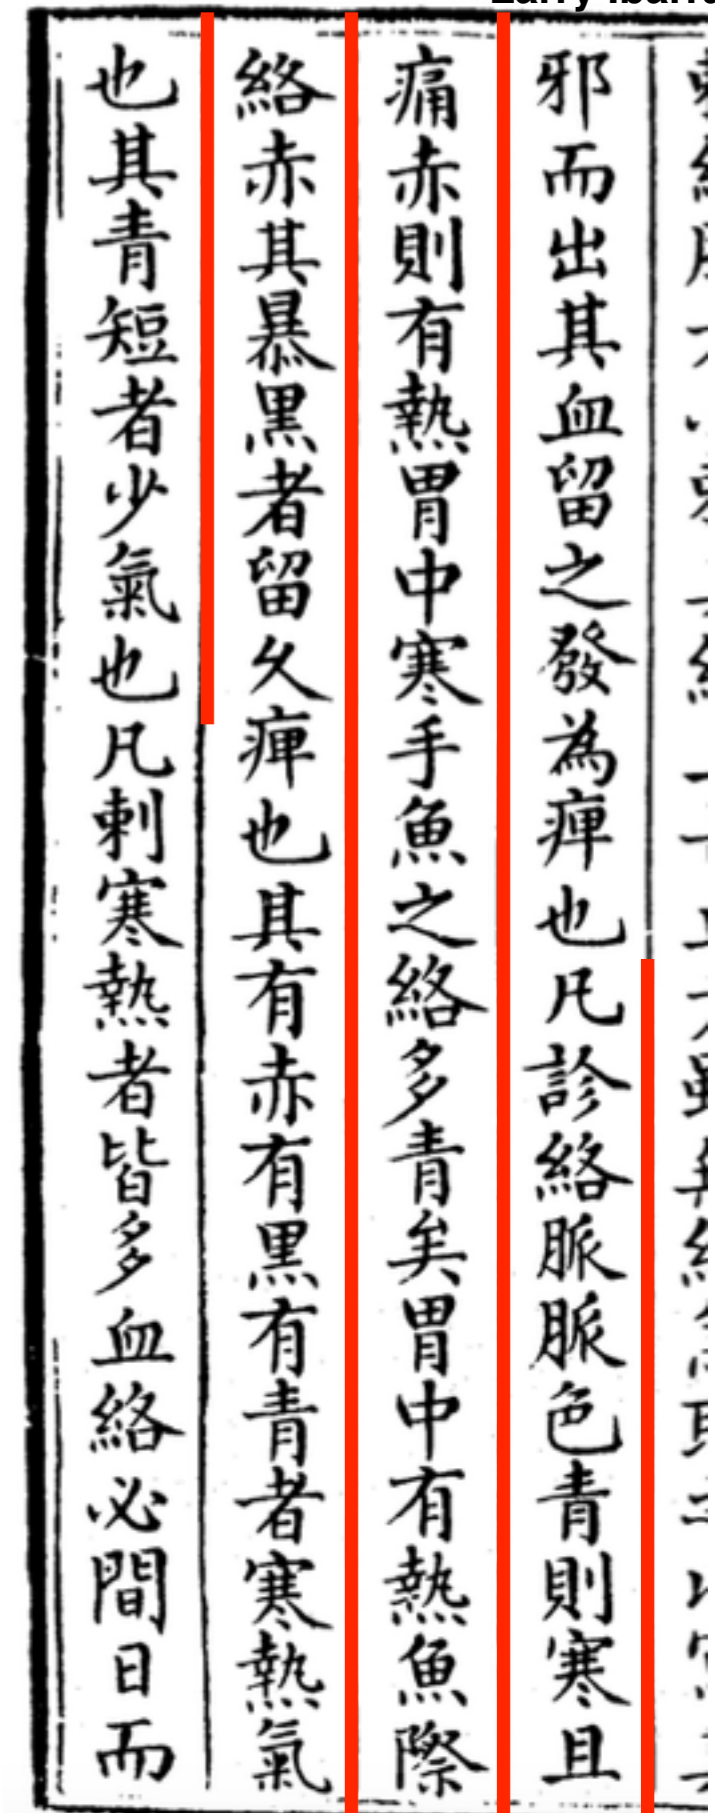 邪而出其血留之發為痺也凡診絡脈脈色青則寒且
痛赤則有熱胃中寒手魚之絡多青矣胃中有熱魚際
絡赤其暴黑者留久痺也其有赤有黑有青者寒熱氣
也其青短者少氣也凡刺寒熱者皆多血絡必間日而